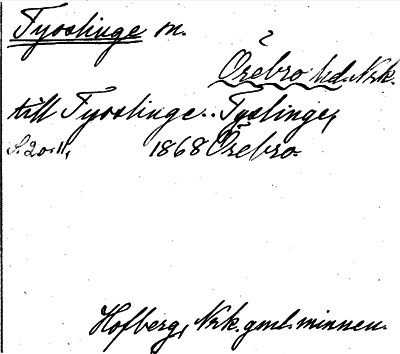 Tysslinge sn.
?
Örebro hd. Nrk.
till Tysslinge.. Tyslinge,
S. 20. 11, 1868 Örebro.
Hofberg, Nrk. gml. minnen.